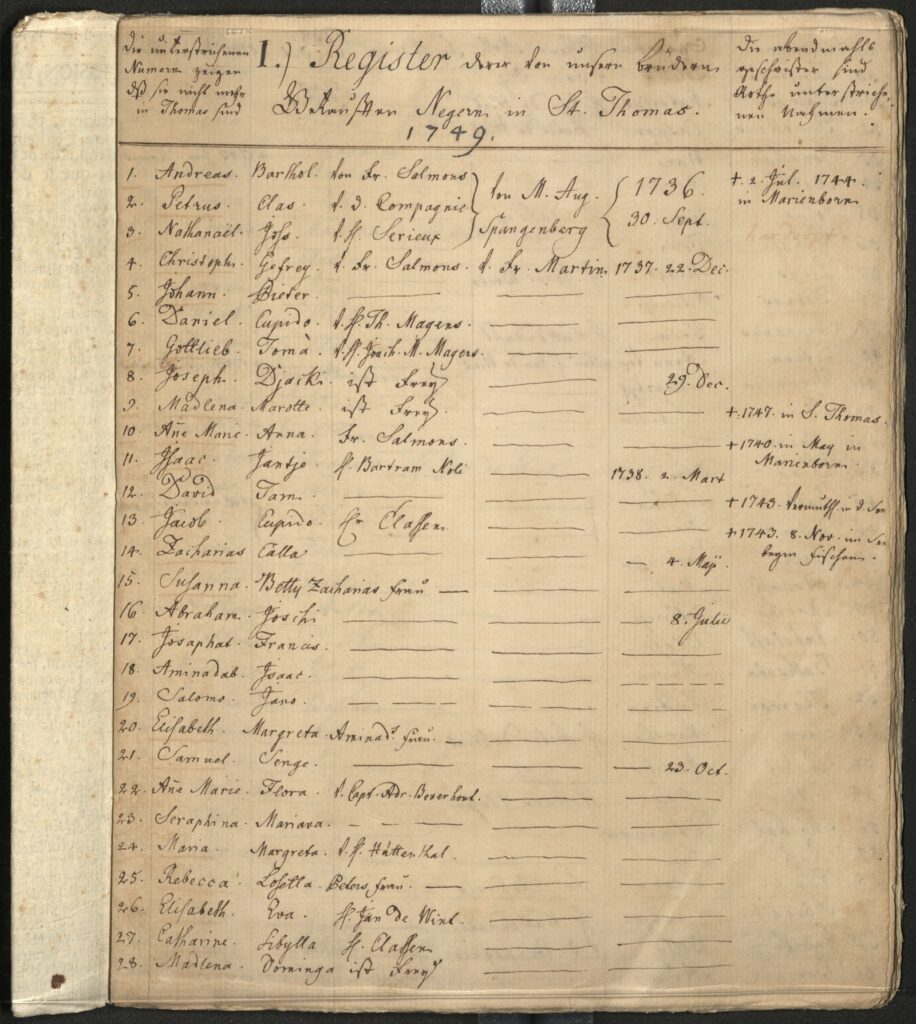 Die unterstrichenen
Numern zeigen
dß sie nicht mehr
in Thomas sind
1.) Register derer von unsern Brüdern
Getaufften Negern in St. Thomas.
1749.
Die abendmahls
geschwister sind
Rothe unterstriche-
nen Nahmen.
1. Andreas. Barthol. von Fr. Salmons von M. Aug. Spangenberg 1736. 30. Sept. †. 2. Jul. 1744. in Marienborn
2. Petrus. Clas. v. d. Compagnie
3. Nathanaël. Johs. v. H. Serieux
4. Christoph. Gefrey. v. Fr. Salmons. v. Fr. Martin 1737. 22. Dec.
5. Johann. Pieter. — — —
6. Daniel. Cupido. v. H. Th. Magens. — —
7. Gottlieb. Tomà. v. H. Joach. M. Magens. — —
8. Joseph. Djacki. ist Frey — 29. Dec.
9. Madlena. Marotte. ist Frey. — — †. 1747. in S. Thomas.
10. Añe Marie. Anna. Fr. Salmons. — †. 1740. in May in Marienborn.
11. Isaac. Jantje. H. Bartram Noli — 1738. 2. Mart
12. David Tam. — — — † 1743. in d. See
13. Jacob. Cupido. Hr Classen — — † 1743. 8. Nov. im See beym fischen.
14. Zacharias Calla — — — 4. Maÿ.
15. Susanna. Betty Zacharias Frau — — —
16. Abraham. Joschi — — — 8. Julii
17. Josaphat. Francis. — — —
18. Aminadab. Isaac. — — —
19. Salomo. Jano. — — — — —
20. Elisabeth. Margreta. Aminad. Frau. — — —
21. Samuel. Senge. — — — 23. Oct.
22. Añe Marie. Flora. v. Capt. Adr. Beverhout. — —
23. Seraphina. Mariana. — — — — —
24. Maria. Margreta. v. H. Hüttenthal. — —
25. Rebecca. Losetta. Peters Frau. — — —
26. Elisabeth. Eva. H. Jan de Wint. — —
27. Catharine. Sibylla H. Classen — —
28. Madlena. Dominga ist Frey — —